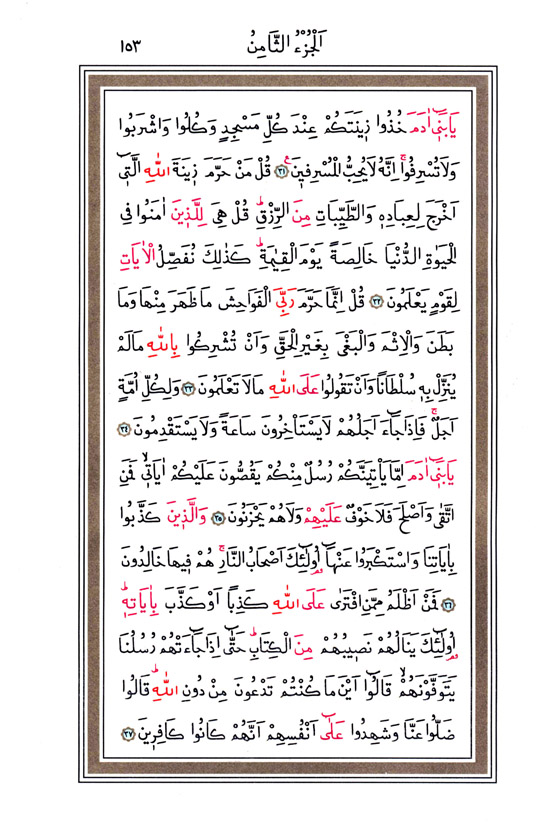 اَلْجُزْءُ الثَّامِنُ ١٥٣
يَا بَنٖٓي اٰدَمَ خُذُوا زٖينَتَكُمْ عِنْدَ كُلِّ مَسْجِدٍ وَكُلُوا وَاشْرَبُوا
وَلَا تُسْرِفُواۚ اِنَّهُ لَا يُحِبُّ الْمُسْرِفٖينَࣖ ﴿٣١﴾ قُلْ مَنْ حَرَّمَ زٖينَةَ اللّٰهِ الَّتٖٓي
اَخْرَجَ لِعِبَادِهٖ وَالطَّيِّبَاتِ مِنَ الرِّزْقِؕ قُلْ هِيَ لِلَّذٖينَ اٰمَنُوا فِي
الْحَيٰوةِ الدُّنْيَا خَالِصَةً يَوْمَ الْقِيٰمَةِؕ كَذٰلِكَ نُفَصِّلُ الْاٰيَاتِ
لِقَوْمٍ يَعْلَمُونَ ﴿٣٢﴾ قُلْ اِنَّمَا حَرَّمَ رَبِّيَ الْفَوَاحِشَ مَا ظَهَرَ مِنْهَا وَمَا
بَطَنَ وَالْاِثْمَ وَالْبَغْيَ بِغَيْرِ الْحَقِّ وَاَنْ تُشْرِكُوا بِاللّٰهِ مَا لَمْ
يُنَزِّلْ بِهٖ سُلْطَانًا وَاَنْ تَقُولُوا عَلَى اللّٰهِ مَا لَا تَعْلَمُونَ ﴿٣٣﴾ وَلِكُلِّ اُمَّةٍ
اَجَلٌۚ فَاِذَا جَٓاءَ اَجَلُهُمْ لَا يَسْتَأْخِرُونَ سَاعَةً وَلَا يَسْتَقْدِمُونَ ﴿٣٤﴾
يَا بَنٖٓي اٰدَمَ اِمَّا يَأْتِيَنَّكُمْ رُسُلٌ مِنْكُمْ يَقُصُّونَ عَلَيْكُمْ اٰيَاتٖيۙ فَمَنِ
اتَّقٰى وَاَصْلَحَ فَلَا خَوْفٌ عَلَيْهِمْ وَلَا هُمْ يَحْزَنُونَ ﴿٣٥﴾ وَالَّذٖينَ كَذَّبُوا
بِاٰيَاتِنَا وَاسْتَكْبَرُوا عَنْهَٓا اُو۬لٰٓئِكَ اَصْحَابُ النَّارِۚ هُمْ فٖيهَا خَالِدُونَ
﴿٣٦﴾ فَمَنْ اَظْلَمُ مِمَّنِ افْتَرٰى عَلَى اللّٰهِ كَذِبًا اَوْ كَذَّبَ بِاٰيَاتِهٖؕ
اُو۬لٰٓئِكَ يَنَالُهُمْ نَصٖيبُهُمْ مِنَ الْكِتَابِؕ حَتّٰٓى اِذَا جَٓاءَتْهُمْ رُسُلُنَا
يَتَوَفَّوْنَهُمْۙ قَالُٓوا اَيْنَ مَا كُنْتُمْ تَدْعُونَ مِنْ دُونِ اللّٰهِؕ قَالُوا
ضَلُّوا عَنَّا وَشَهِدُوا عَلٰٓى اَنْفُسِهِمْ اَنَّهُمْ كَانُوا كَافِرٖينَ ﴿٣٧﴾